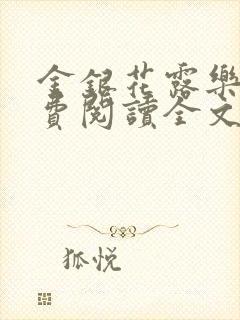 金銀花露樂
費閱讀全文
狐悦